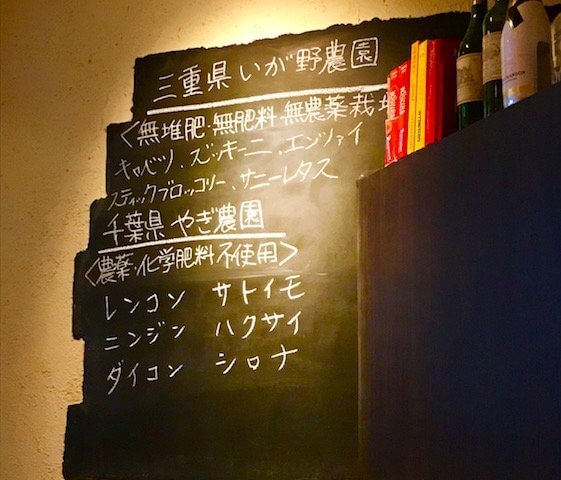 三重県いが野農園
<無堆肥・無肥料・無農薬栽培
キャベツ、ズッキーニ、エンツァイ
スティックブロッコリー、サニーレタス
千葉県 やぎ農園
<農薬・化学肥料不使用>
レンコン サトイモ
ニンジン ハクサイ
ダイコン シロナ